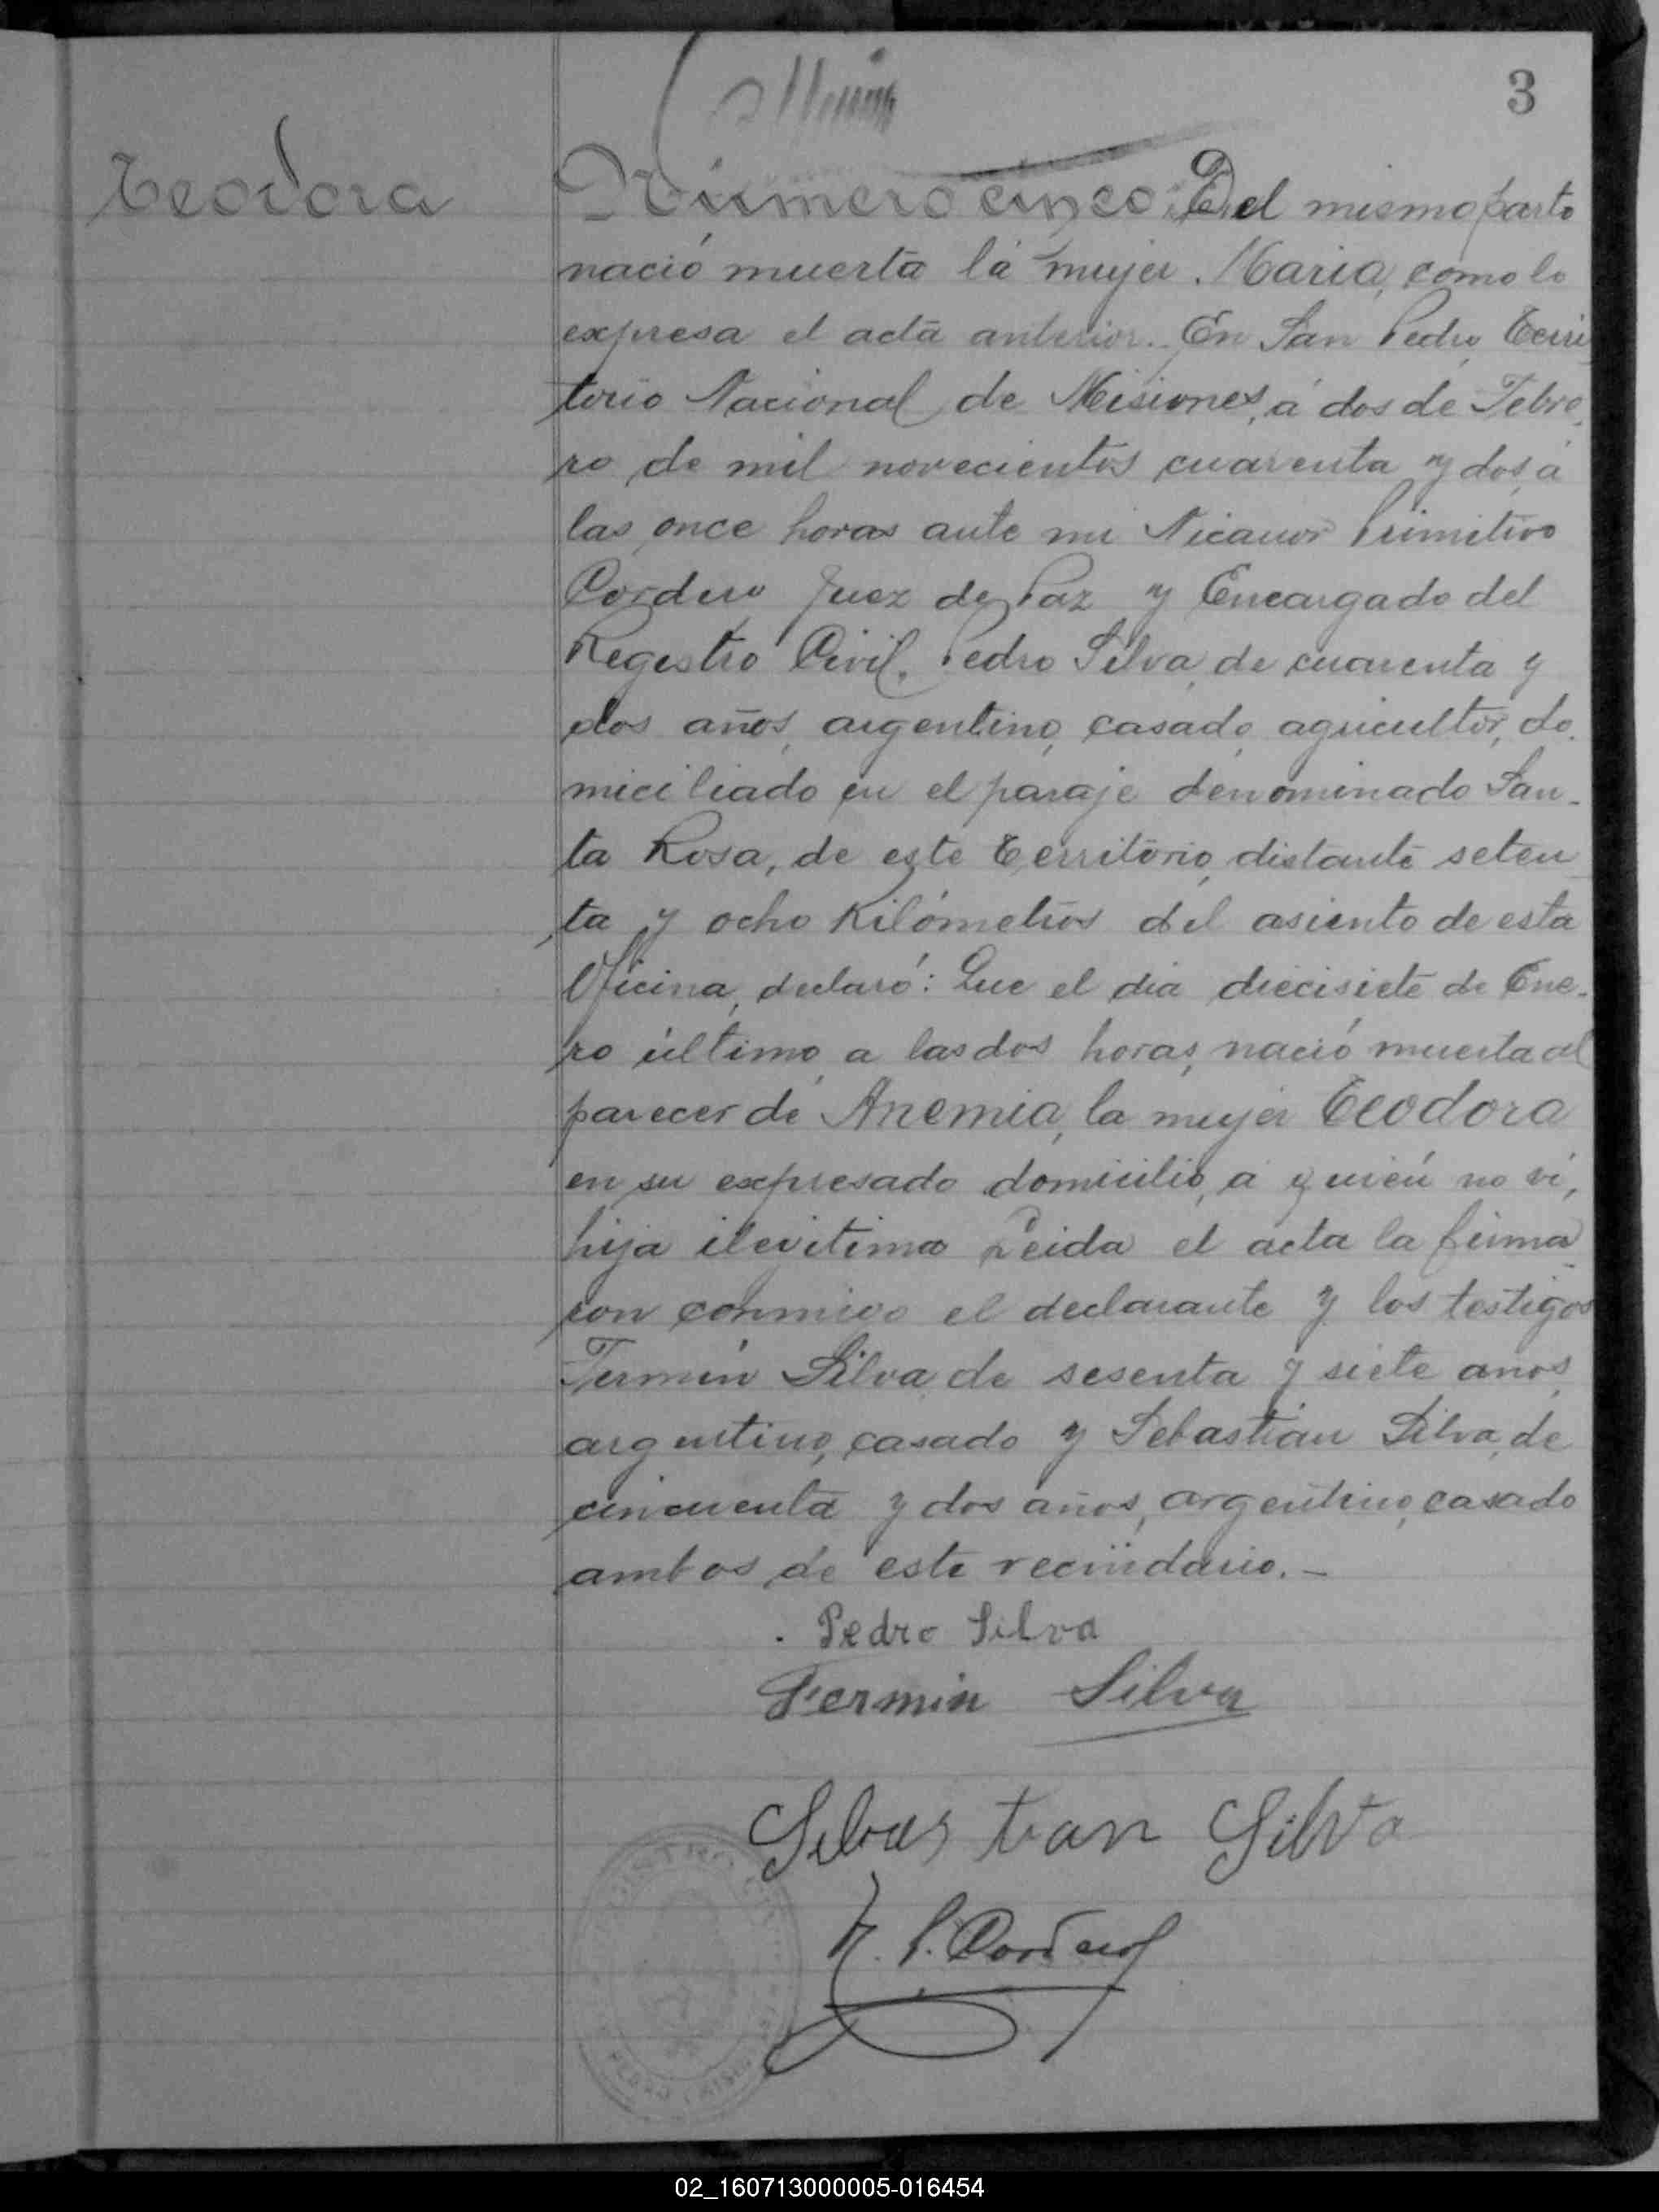 3
Teodora
Número cinco. Del mismo parto
nació muerta la mujer. Maria, como lo
expresa el acta anterior.- En San Pedro, Terri
torio Nacional de Misiones, á dos de Febre
ro de mil novecientos cuarenta y dos, a
las once horas ante mi Nicanor Primitivo
Cordero Juez de Paz y Encargado del
Registro Civil. Pedro Silva, de cuarenta y
dos años, argentino, casado, agricultor, do.
miciliado en el paraje denominado San-
ta Rosa, de este Territorio, distante seten
ta y ocho Kilómetros del asiento de esta
Oficina, declaró: Que el dia diecisiete de Ene-
ro último, a las dos horas, nació muerta al
parecer de Anemia, la mujer Teodora
en su expresado domicilio, a quien no ví,
hija ilegitima Leida el acta la firma
ron conmigo el declarante y los testigos
Fermin Silva, de sesenta y siete años,
argentino, casado y Sebastián Silva, de
cincuenta y dos años, argentino, casado
ambos de este vecindario.-
Pedro Silva
Fermin Silva
Sebastian Silva
N. P. Cordero
02_160713000005-016454